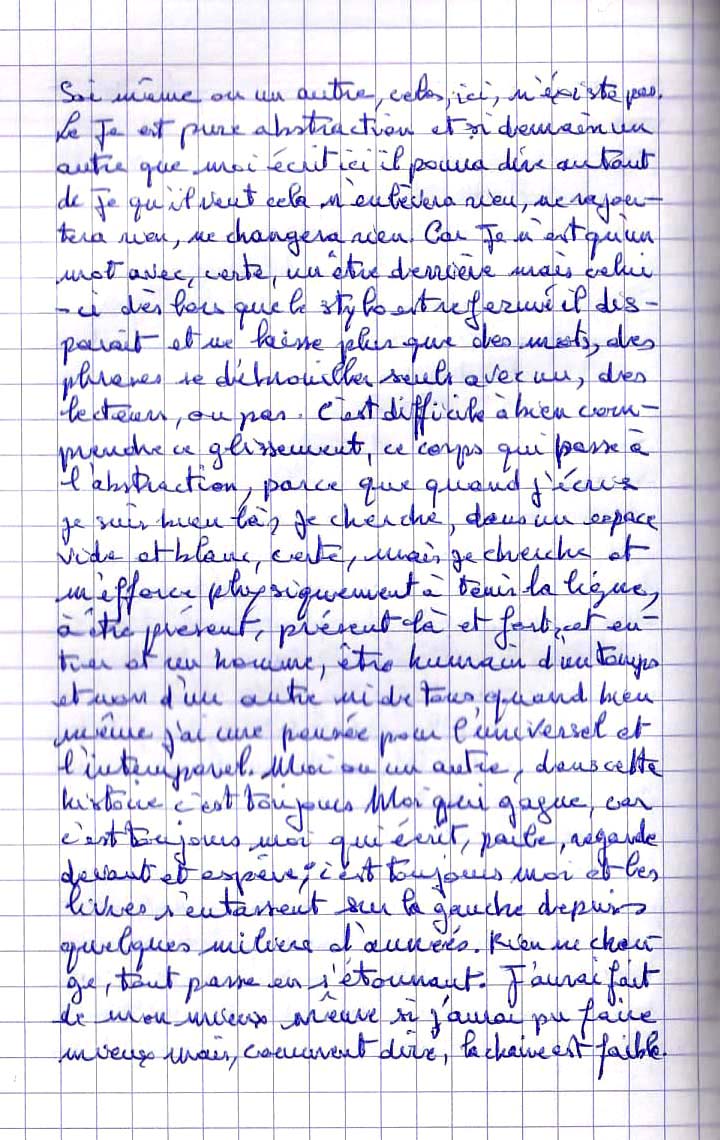 Soi même ou un autre, cela, ici, n'existe pas.
Le Je est pure abstraction et si demain un
autre que moi écrit ici il pourra dire autant
de Je qu'il veut cela n'enlèvera rien, ne rajou-
tera rien, ne changera rien. Car Je n'est qu'un
mot avec, certe, un être derrière mais celui
-ci dès lors que le stylo est refermé il dis-
parait et ne laisse plus que des mots, des
phrases se débrouiller seuls avec un, des
lecteurs, ou pas. C'est difficile à bien com-
prendre ce glissement, ce corps qui passe à
l'abstraction, parce que quand j'écris
je suis bien là, je cherche, dans un espace
vide et blanc, certe, mais je cherche et
m'efforce physiquement à tenir la ligne,
à être présent, présent là et fort, et en-
tier et un homme, être humain d'un temps
et non d'un autre ni de tous, quand bien
même j'ai une pensée pour l'universel et
l'intemporel. Moi ou un autre, dans cette
histoire c'est toujours Moi qui gagne, car
c'est toujours moi qui écrit, parle, regarde
devant et espère, c'est toujours moi et les
livres s'entassent sur la gauche depuis
quelques milliers d'années. Rien ne chan-
ge, tout passe en s'étonnant. J'aurai fait
de mon mieux même si j'aurai pu faire
mieux mais, comment dire, la chaine est faible.